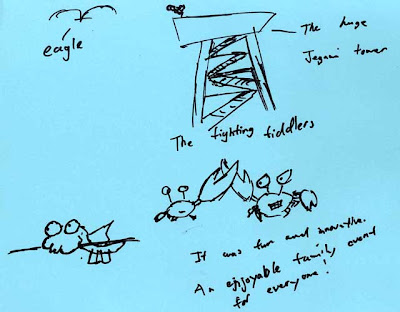 eagle
The huge
Jejawi tower
The fighting fiddlers
It was fun and innovative.
An enjoyable family event
for everyone!